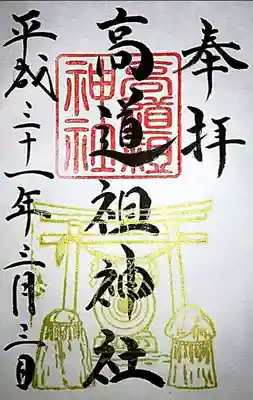 奉拝
高道祖神社
高道祖神社
平成三十一年三月三日